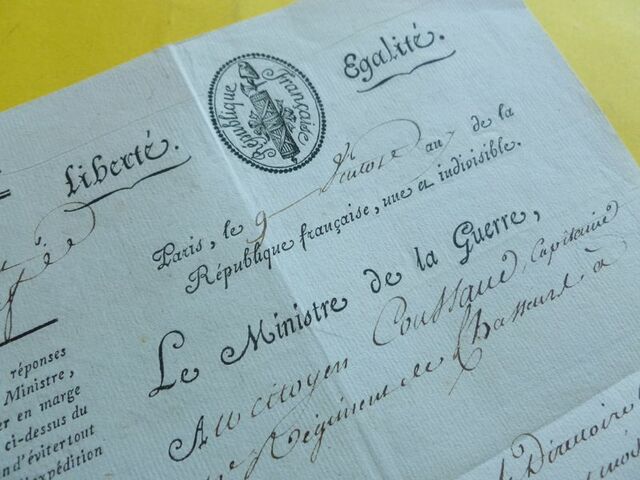 Liberté.
République Française
Egalité.
Paris, le 9 Ventose an de la
République française, une et indivisible.
Le Ministre de la Guerre,
Au citoyen Coussaud, Capitaine
Régiment de Chasseurs à
Directoire
réponses
Ministre,
er en marge
ci-dessus du
n d'éviter tout
expédition